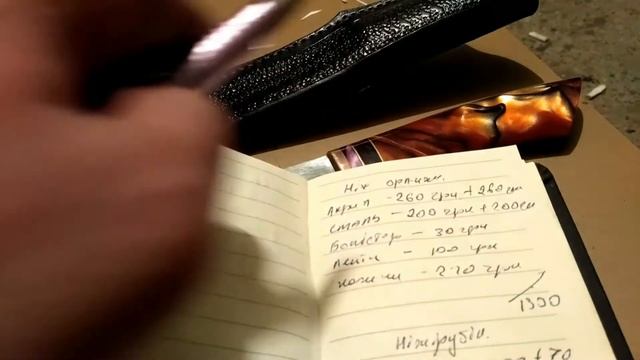 Ніж оранж.
Акрил - 260 грн + 280см
сталь - 200 грн + 200см
Больстер - 30 грн
- 100 грн
- 270 грн
1300
Ніж рубін.
+ 70